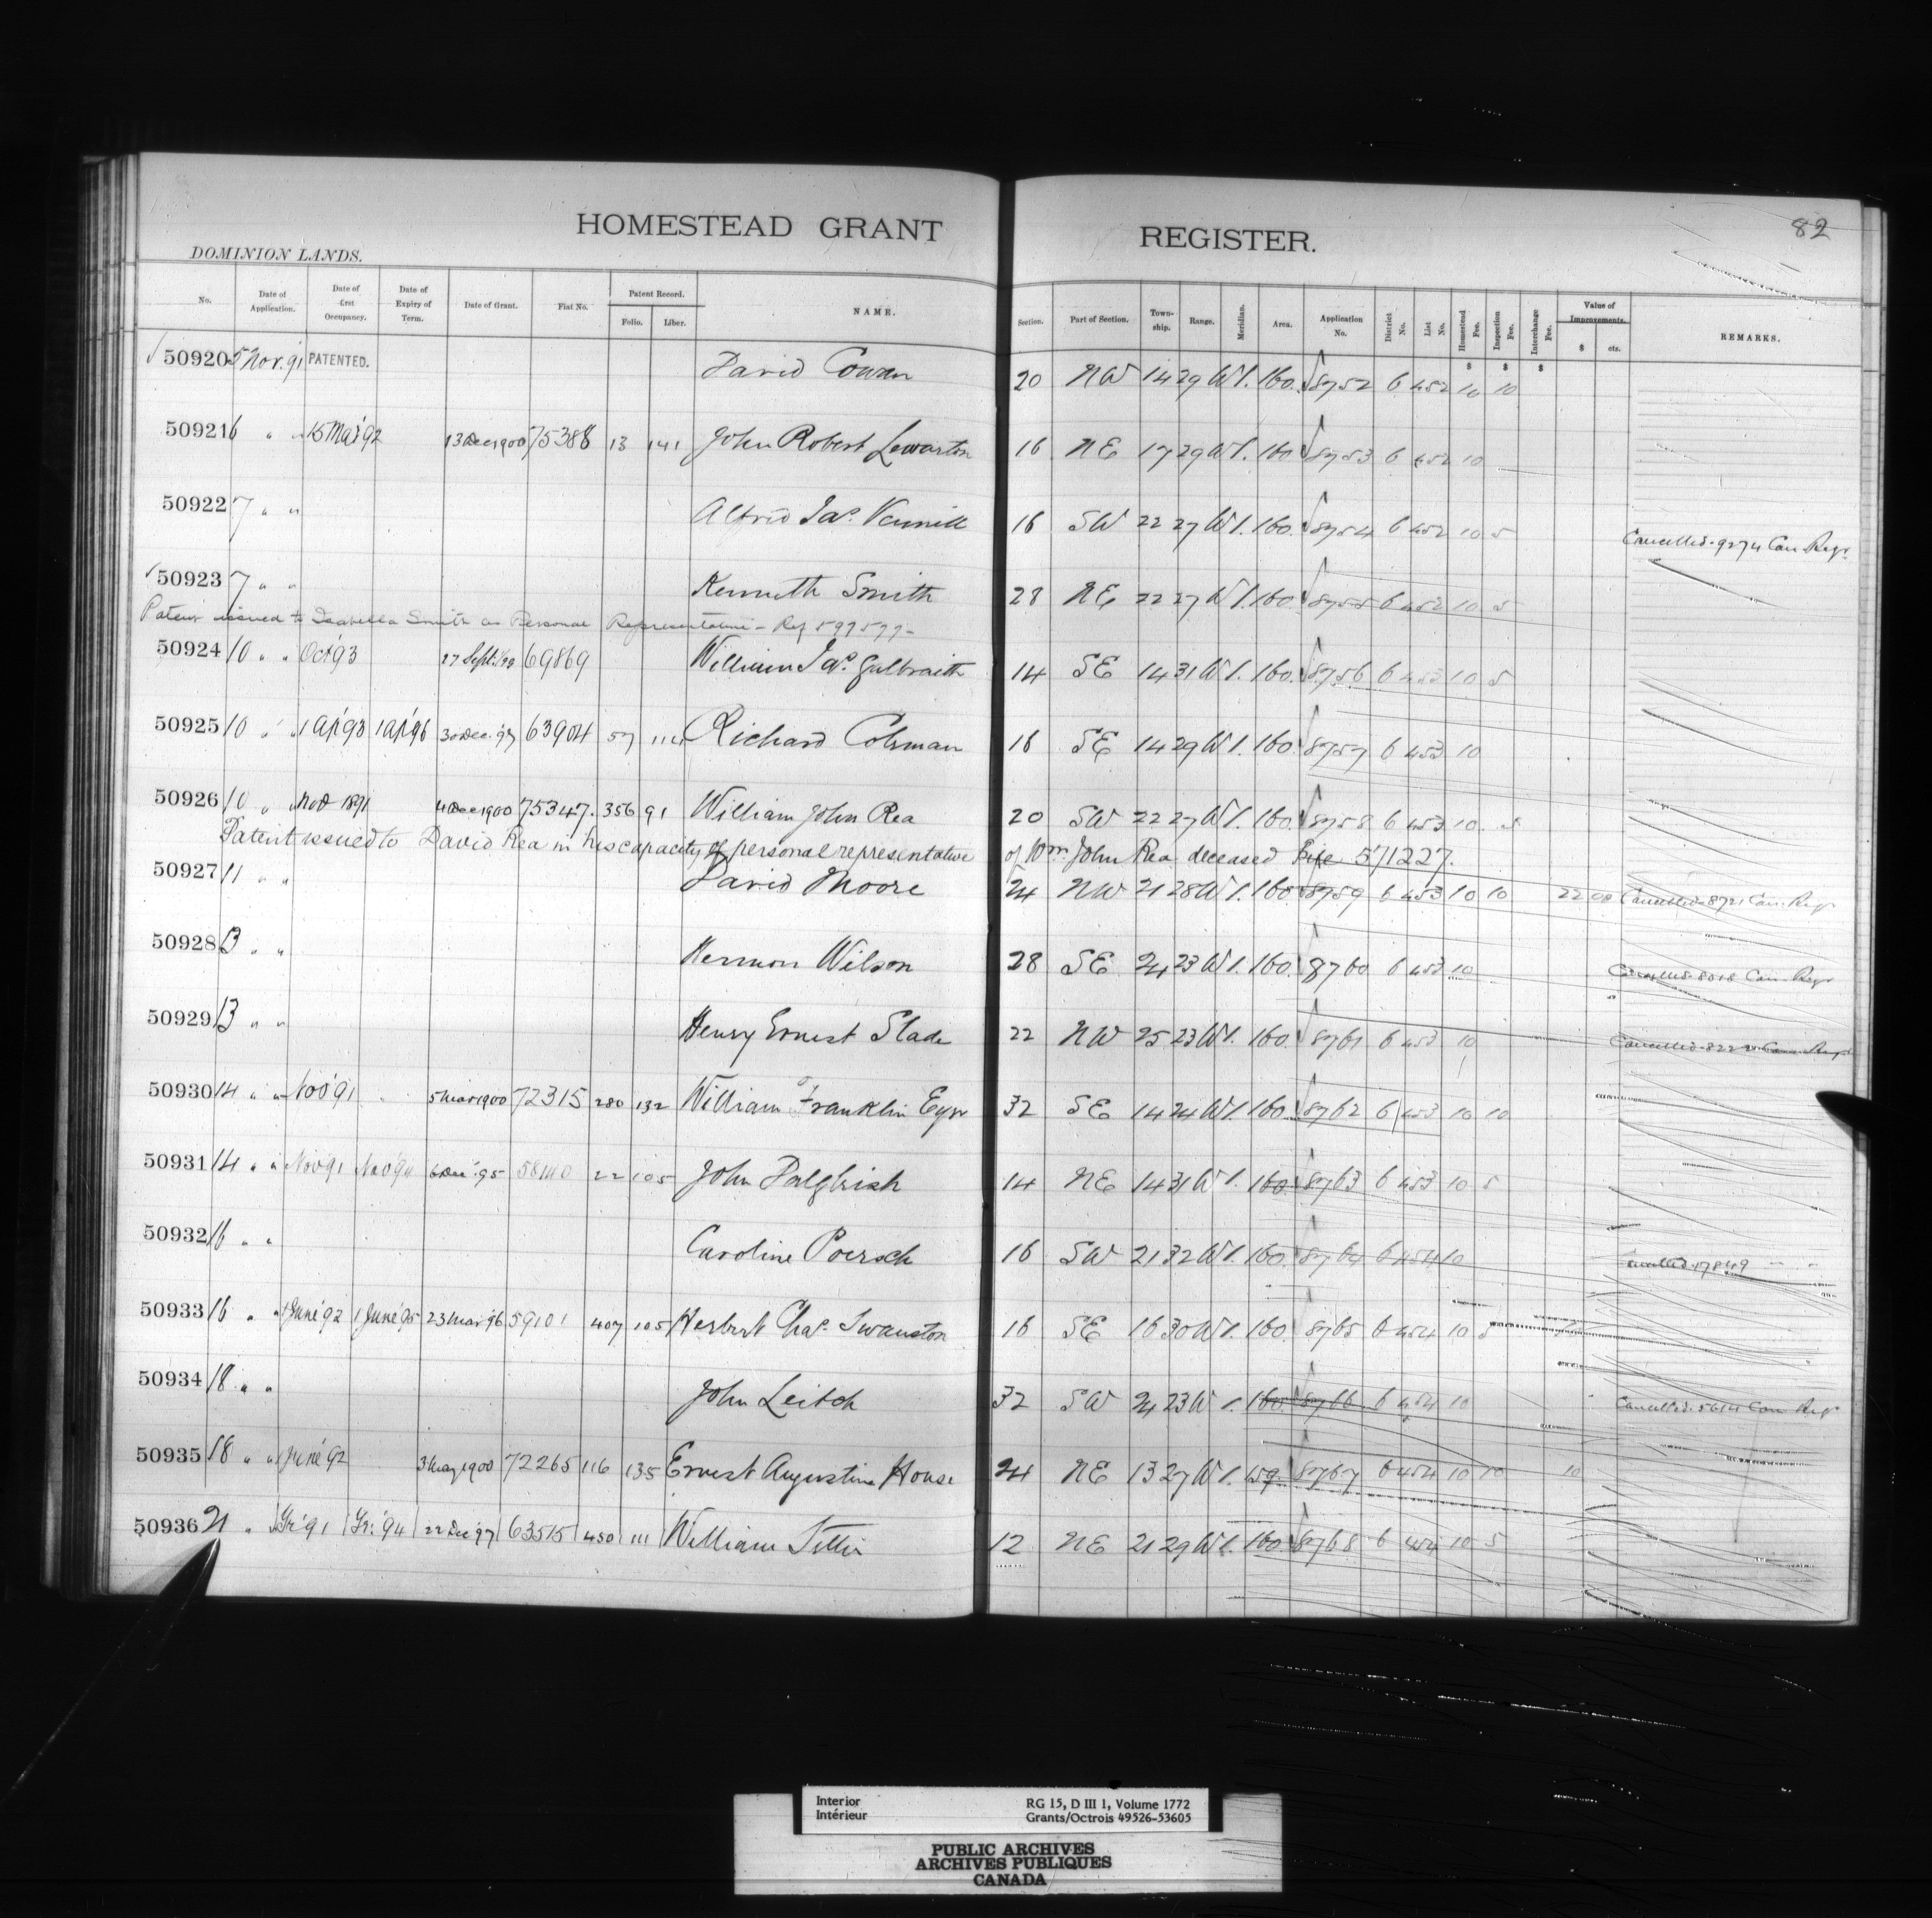 82
HOMESTEAD GRANT REGISTER.
DOMINION LANDS.
No. Date of Application. Date of Occupancy. Date of Expiry of Term. Date of Grant. Fiat No. Patent Record. Folio. Liber. NAME. Section. Part of Section. Township. Range. Meridian. Area. Application No. District No. List No. Homestead Fee. Inspection Fee. Interchange Fee. Value of Improvements. $ cts. REMARKS.
$ $ $
50920 5 Nov. 91 PATENTED. David Cowan 20 NW 14 29 W1. 160. 8752 6 452 10 10
50921 6 " " 15 Mar '92 13 Dec 1900 75388 13 141 John Robert Lewarton 16 NE 17 29 W1. 160. 8753 6 452 10
50922 7 " " Alfred Jas. 16 SW 22 27 W1. 160. 8754 6 452 10 5 Cancelled. 9274 Can. Regr.
50923 7 " " Kenneth Smith 28 NE 22 27 W1. 160. 8755 6 452 10 5
Patent issued to Isabella Smith as Personal Representative - Ref 597577-
50924 10 " " Oct '93 27 Sept. /99 69869 William Jas. Galbraith 14 SE 14 31 W1. 160. 8756 6 453 10 5
50925 10 " " 1 Ap '93 1 Ap '96 30 Dec. '97 63904 57 114 Richard Colman 16 SE 14 29 W1. 160. 8757 6 453 10
50926 10 " " Nov 1891 4 Dec 1900 75347. 356 91 William John Rea 20 SW 22 27 W1. 160. 8758 6 453 10. 5
Patent issued to David Rea in his capacity of personal representative of Wm. John Rea deceased File 571227.
50927 11 " " David Moore 24 NW 21 28 W1. 160 8759 6 453 10 10 22 00 Cancelled. 8721 Can. Regr
50928 13 " " Hermon Wilson 28 SE 24 23 W1. 160. 8760 6 453 10 Can. Regr
50929 13 " " Henry Ernest Slade 22 NW 25 23 W1. 160. 8761 6 453 10 Cancelled.
50930 14 " " Nov '91 5 Mar 1900 72315 280 132 William Franklin 32 SE 14 24 W1. 160. 8762 6 453 10 10
50931 14 " " Nov '91 Nov '94 6 Dec. '95 58140 22 105 John Dalgleish 14 NE 14 31 W1. 160. 8763 6 453 10 5
50932 16 " " Caroline Poersch 16 SW 21 32 W1. 160. 8764 6 454 10 Cancelled. 17849 " "
50933 16 " " 1 June '92 1 June '95 23 Mar '96 59101 407 105 Herbert Chas. Swanston 16 SE 16 30 W1. 160. 8765 6 454 10 5
50934 18 " " John Leitch 32 SW 24 23 W1. 160. 8766 6 454 10 Cancelled. 5614 Can. Regr
50935 18 " " June '92 3 1900 72265 116 135 Ernest Augustine House 24 NE 13 27 W1. 159. 8767 6 454 10 10 10
50936 21 " " '91 '94 22 Dec '97 63515 450 111 William 12 NE 21 29 W1. 160. 8768 6 454 10 5
Interior
Intérieur
RG 15, D III 1, Volume 1772
Grants/Octrois 49526-53605
PUBLIC ARCHIVES
ARCHIVES PUBLIQUES
CANADA